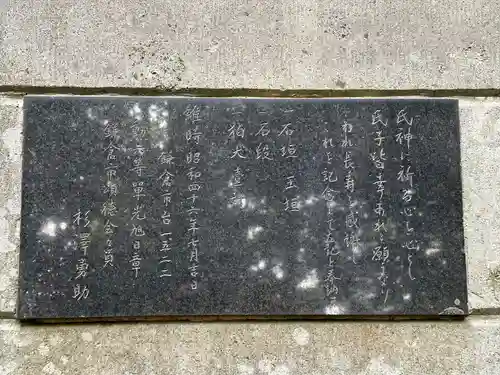 氏神に祈る心を心とし
氏子皆幸あれと願ふなり
われ長寿を感謝し
これを記念して礼と奉納
一石垣 玉垣
一石段
一狛犬台
維時昭和四十六年七月吉日
鎌倉市台一五二二
勲六等單光旭日章
鎌倉市頌徳会々員
杉澤勇助